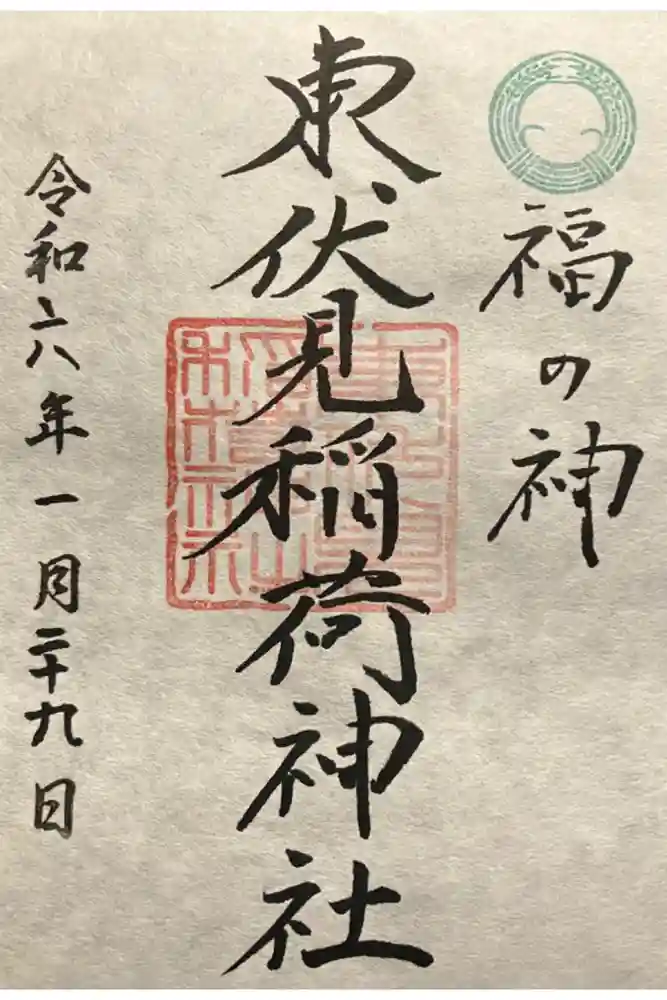 福の神
東伏見稲荷神社
令和六八年一月二十九日